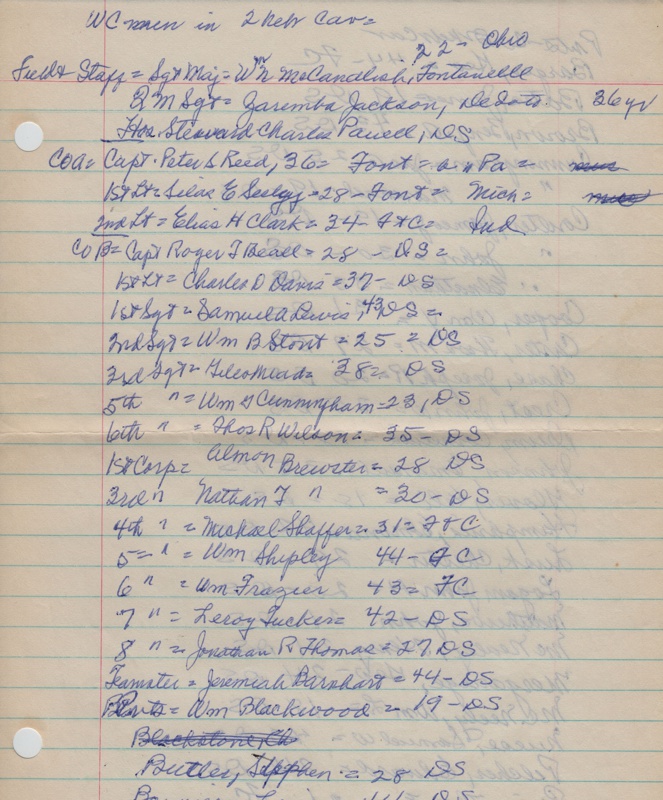 WC men in 2 Neb Cav =
22 - Ohio
Field & Staff = Sgt Maj = Wm McCandlish, Fontanelle
Q M Sgt = Zaremba Jackson, DeSoto 36 yr
Hos. Steward Charles Powell, DS
CO A = Capt. Peter S Reed, 36 = Font = a " Pa =
1st Lt = Silas E Seeley - 28 - Font = Mich =
2nd Lt = Elias H Clark = 34 - Ft C = Ind
CO B = Capt Roger T Beall = 28 - DS =
1st Lt = Charles D Davis = 37 - DS
1st Sgt = Samuel A Lewis, 43 DS =
2nd Sgt = Wm B Stout = 25 = DS
3rd Sgt = Mead = 38 = DS
5th " = Wm G Cunningham - 23, DS
6th " = Thos R Wilson = 35 - DS
1st Corp = Almon Brewster = 28 DS
3rd " Nathan F " = 20 - DS
4th " = Michael Shaffer = 31 = Ft C
5 - " = Wm Shipley 44 - FC
6 " = Wm Frazier 43 = FC
7 " = Leroy Tucker = 42 - DS
8 " = Jonathan R Thomas = 27 DS
Teamster = Jeremiah Barnhart = 44 - DS
Pvts = Wm Blackwood = 19 - DS
Blackstone
Butler, Stephen = 28 DS